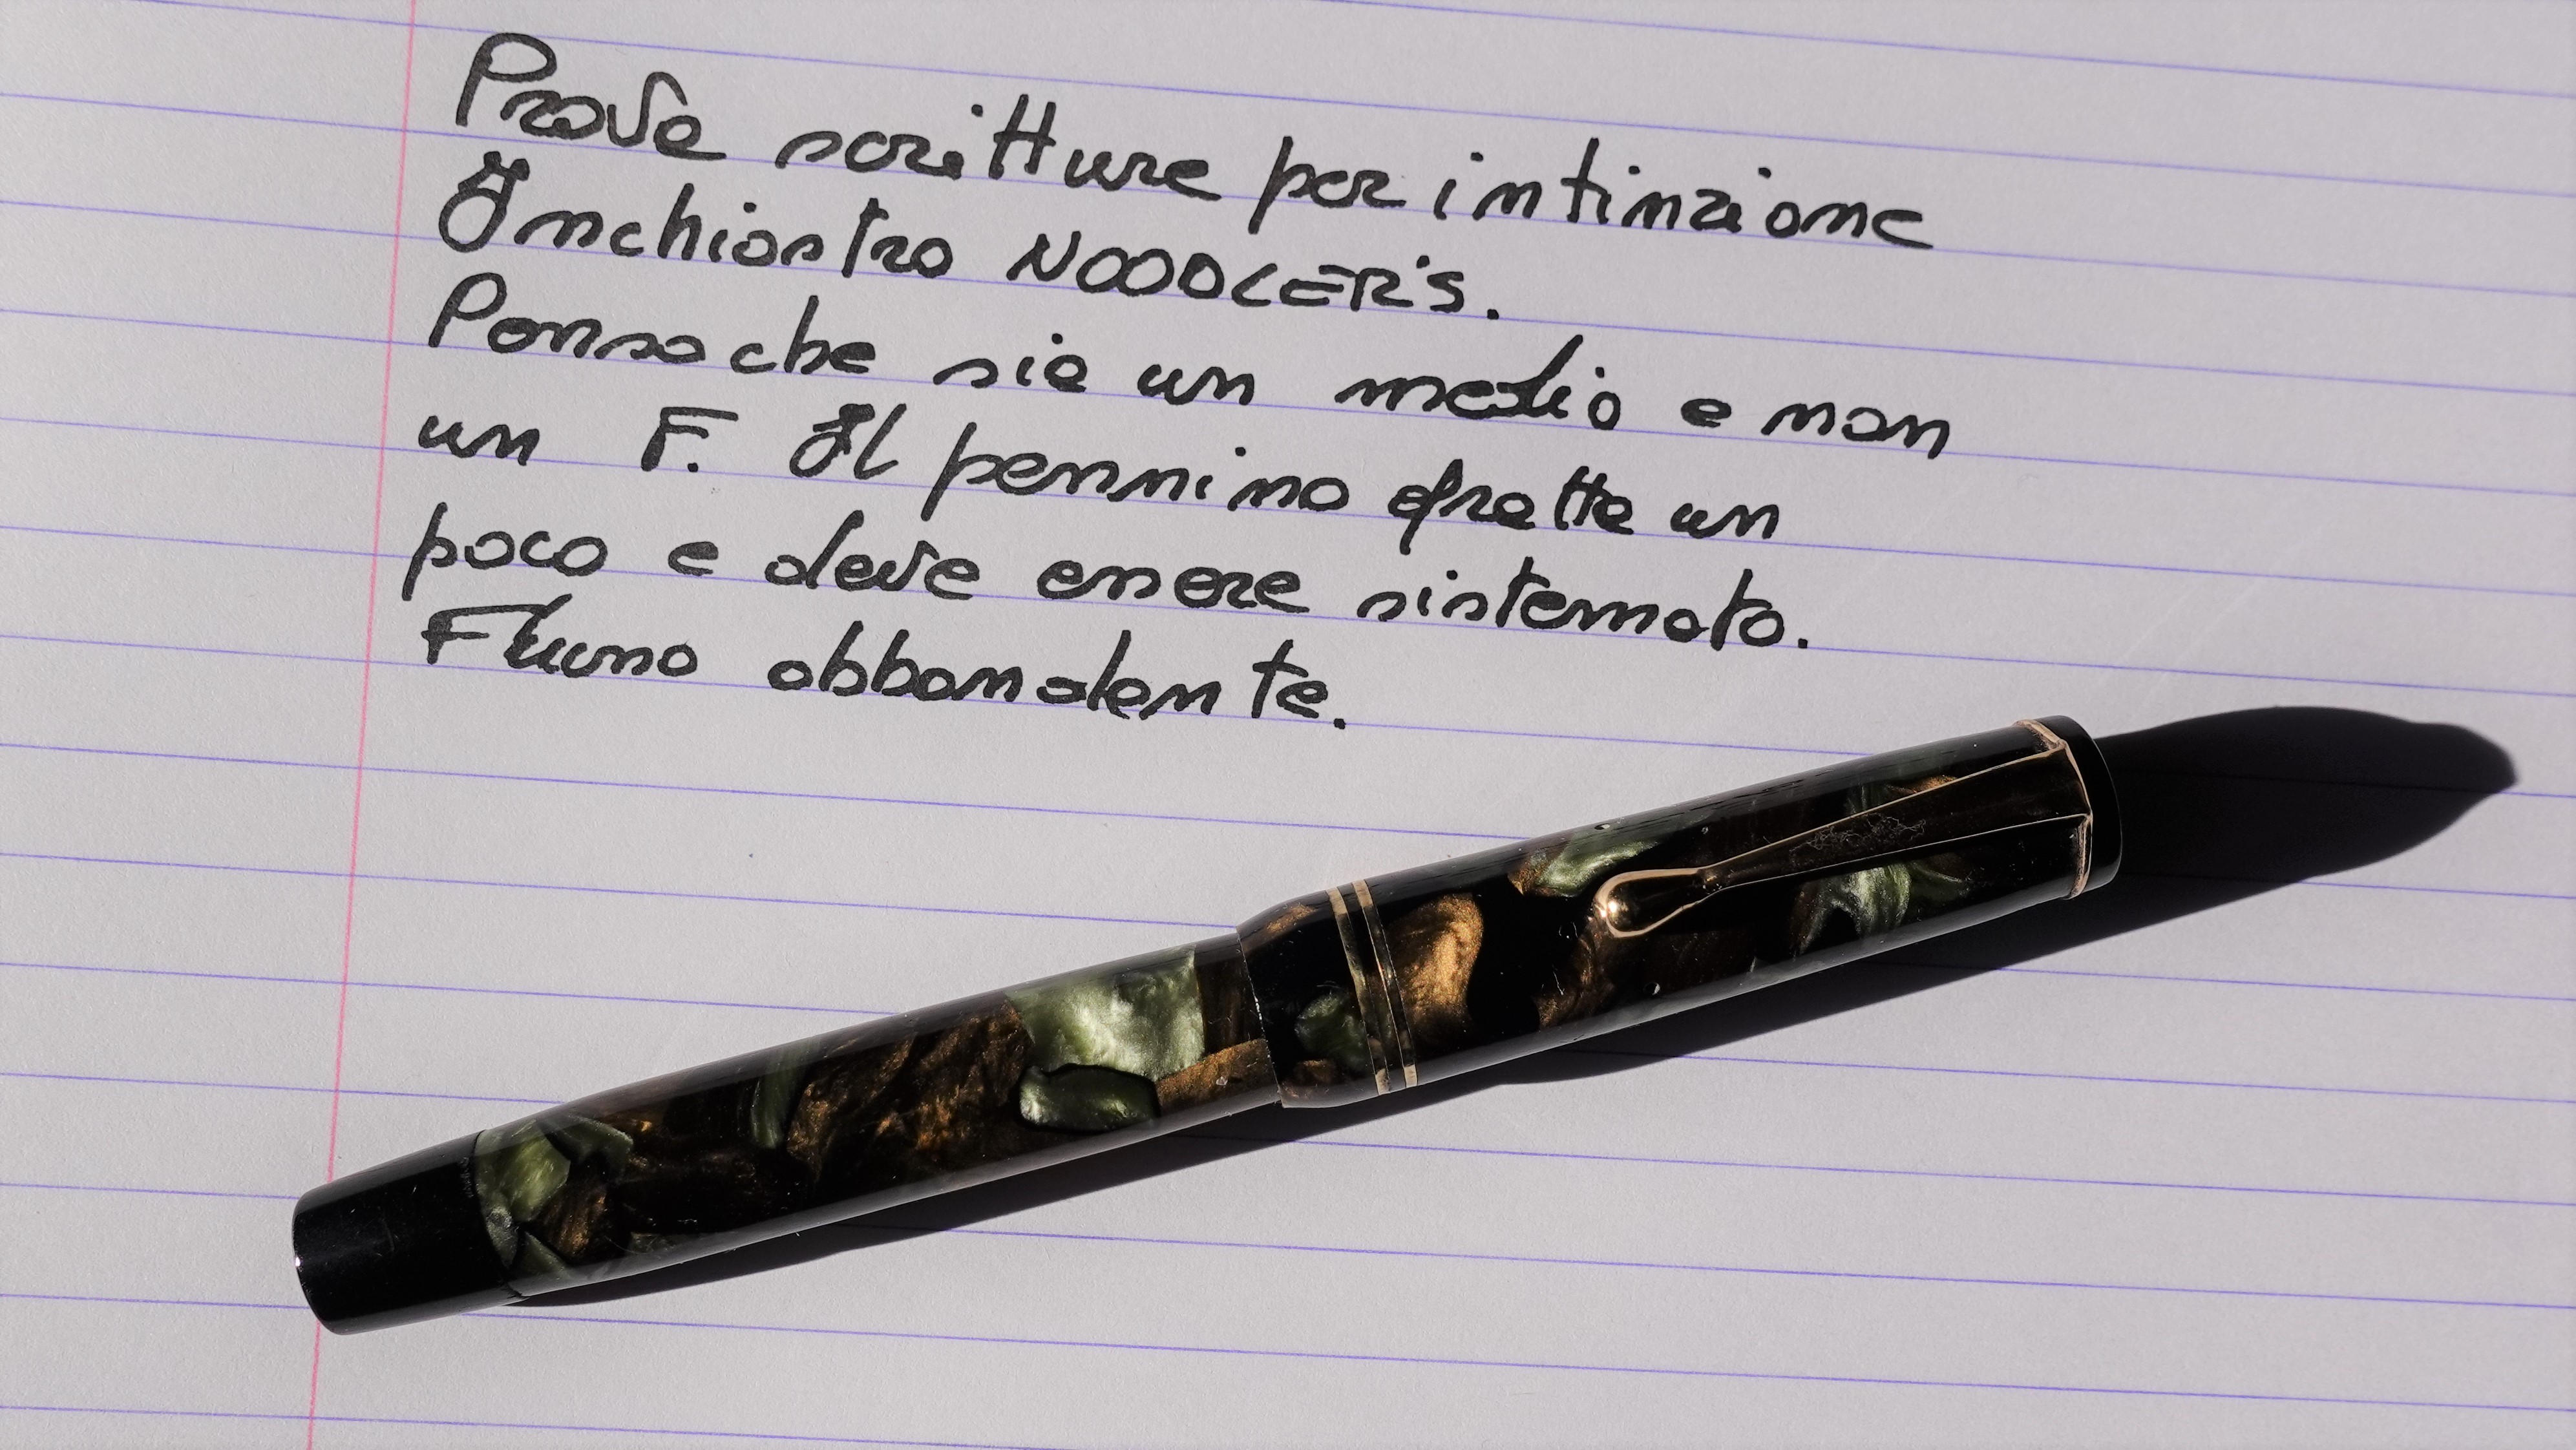 Prova scrittura per intinzione
Inchiostro NOODLER'S.
Penso che sia un medio e non
un F. Il pennino gratta un
poco e deve essere sistemato.
Flusso abbondante.